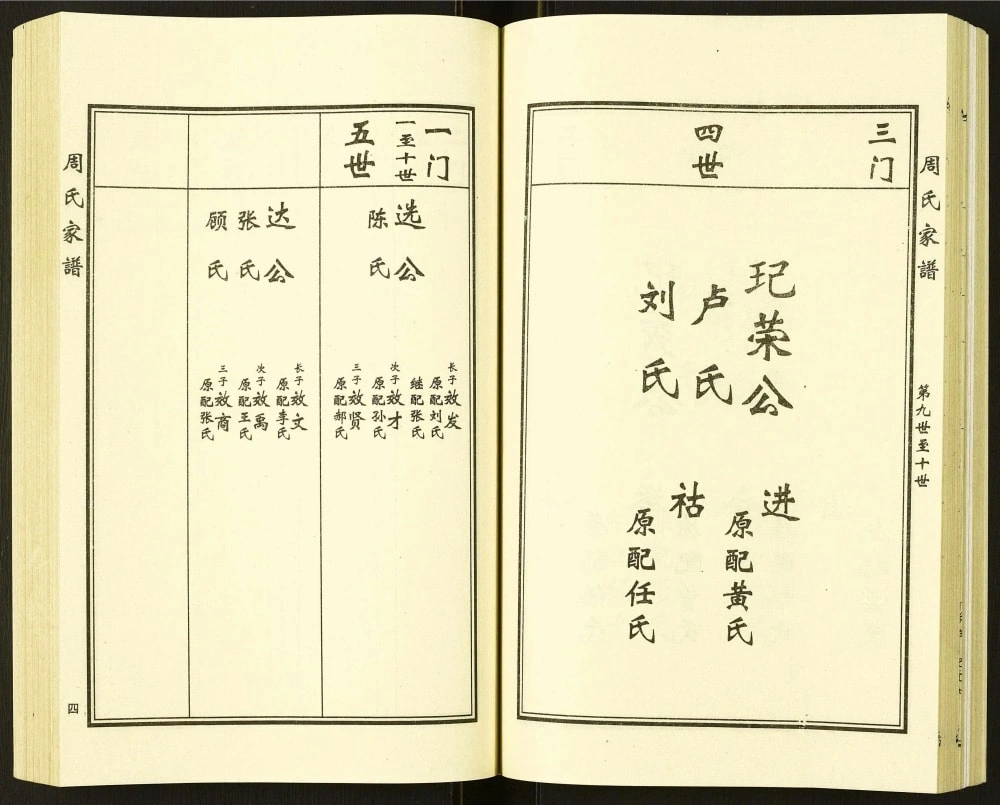 周氏家譜
第九世至十世
三门
四世
玘荣公
卢氏
刘氏
进
原配黄氏
祜
原配任氏
一门
一至十世
五世
选公
陈氏
长子效发
原配刘氏
继配张氏
次子效才
原配孙氏
三子效贤
原配郝氏
达公
张氏
顾氏
长子效文
原配李氏
次子效禹
原配王氏
三子效商
原配张氏
周氏家譜
四